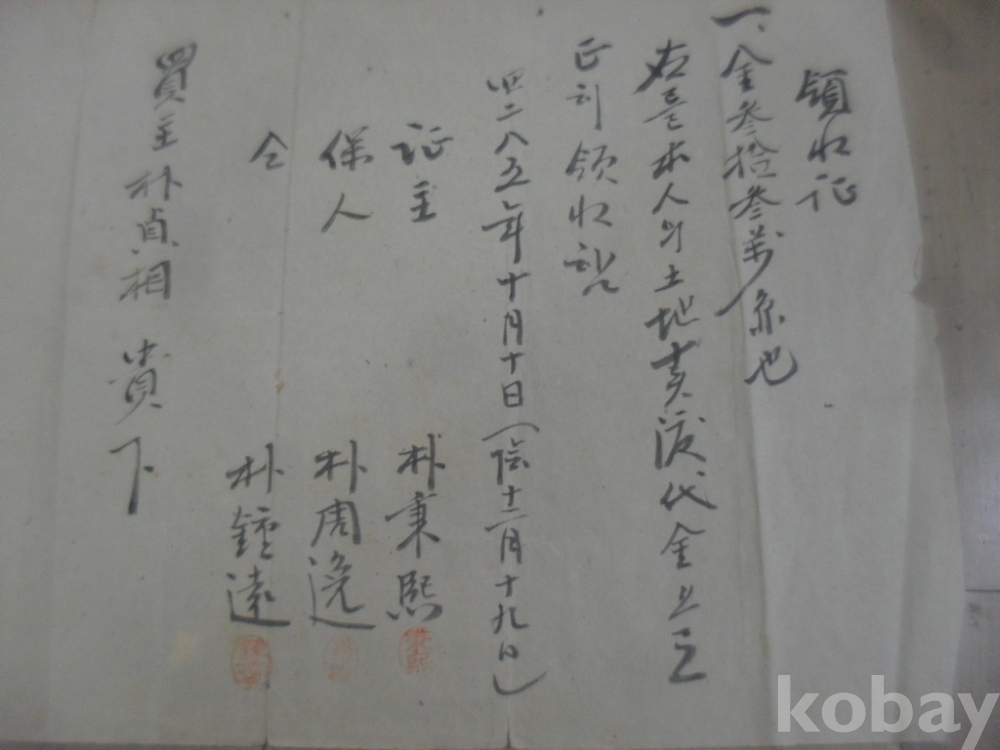 領收证
一、金叁拾叁萬원也
右는本人의土地賣渡代金으로
正히領收홈
四二八五年十月十日(陰十二月十九日)
证主 朴秉熙
保人 朴周逸
仝 朴鍾遠
買主朴貞相 貴下
kobay